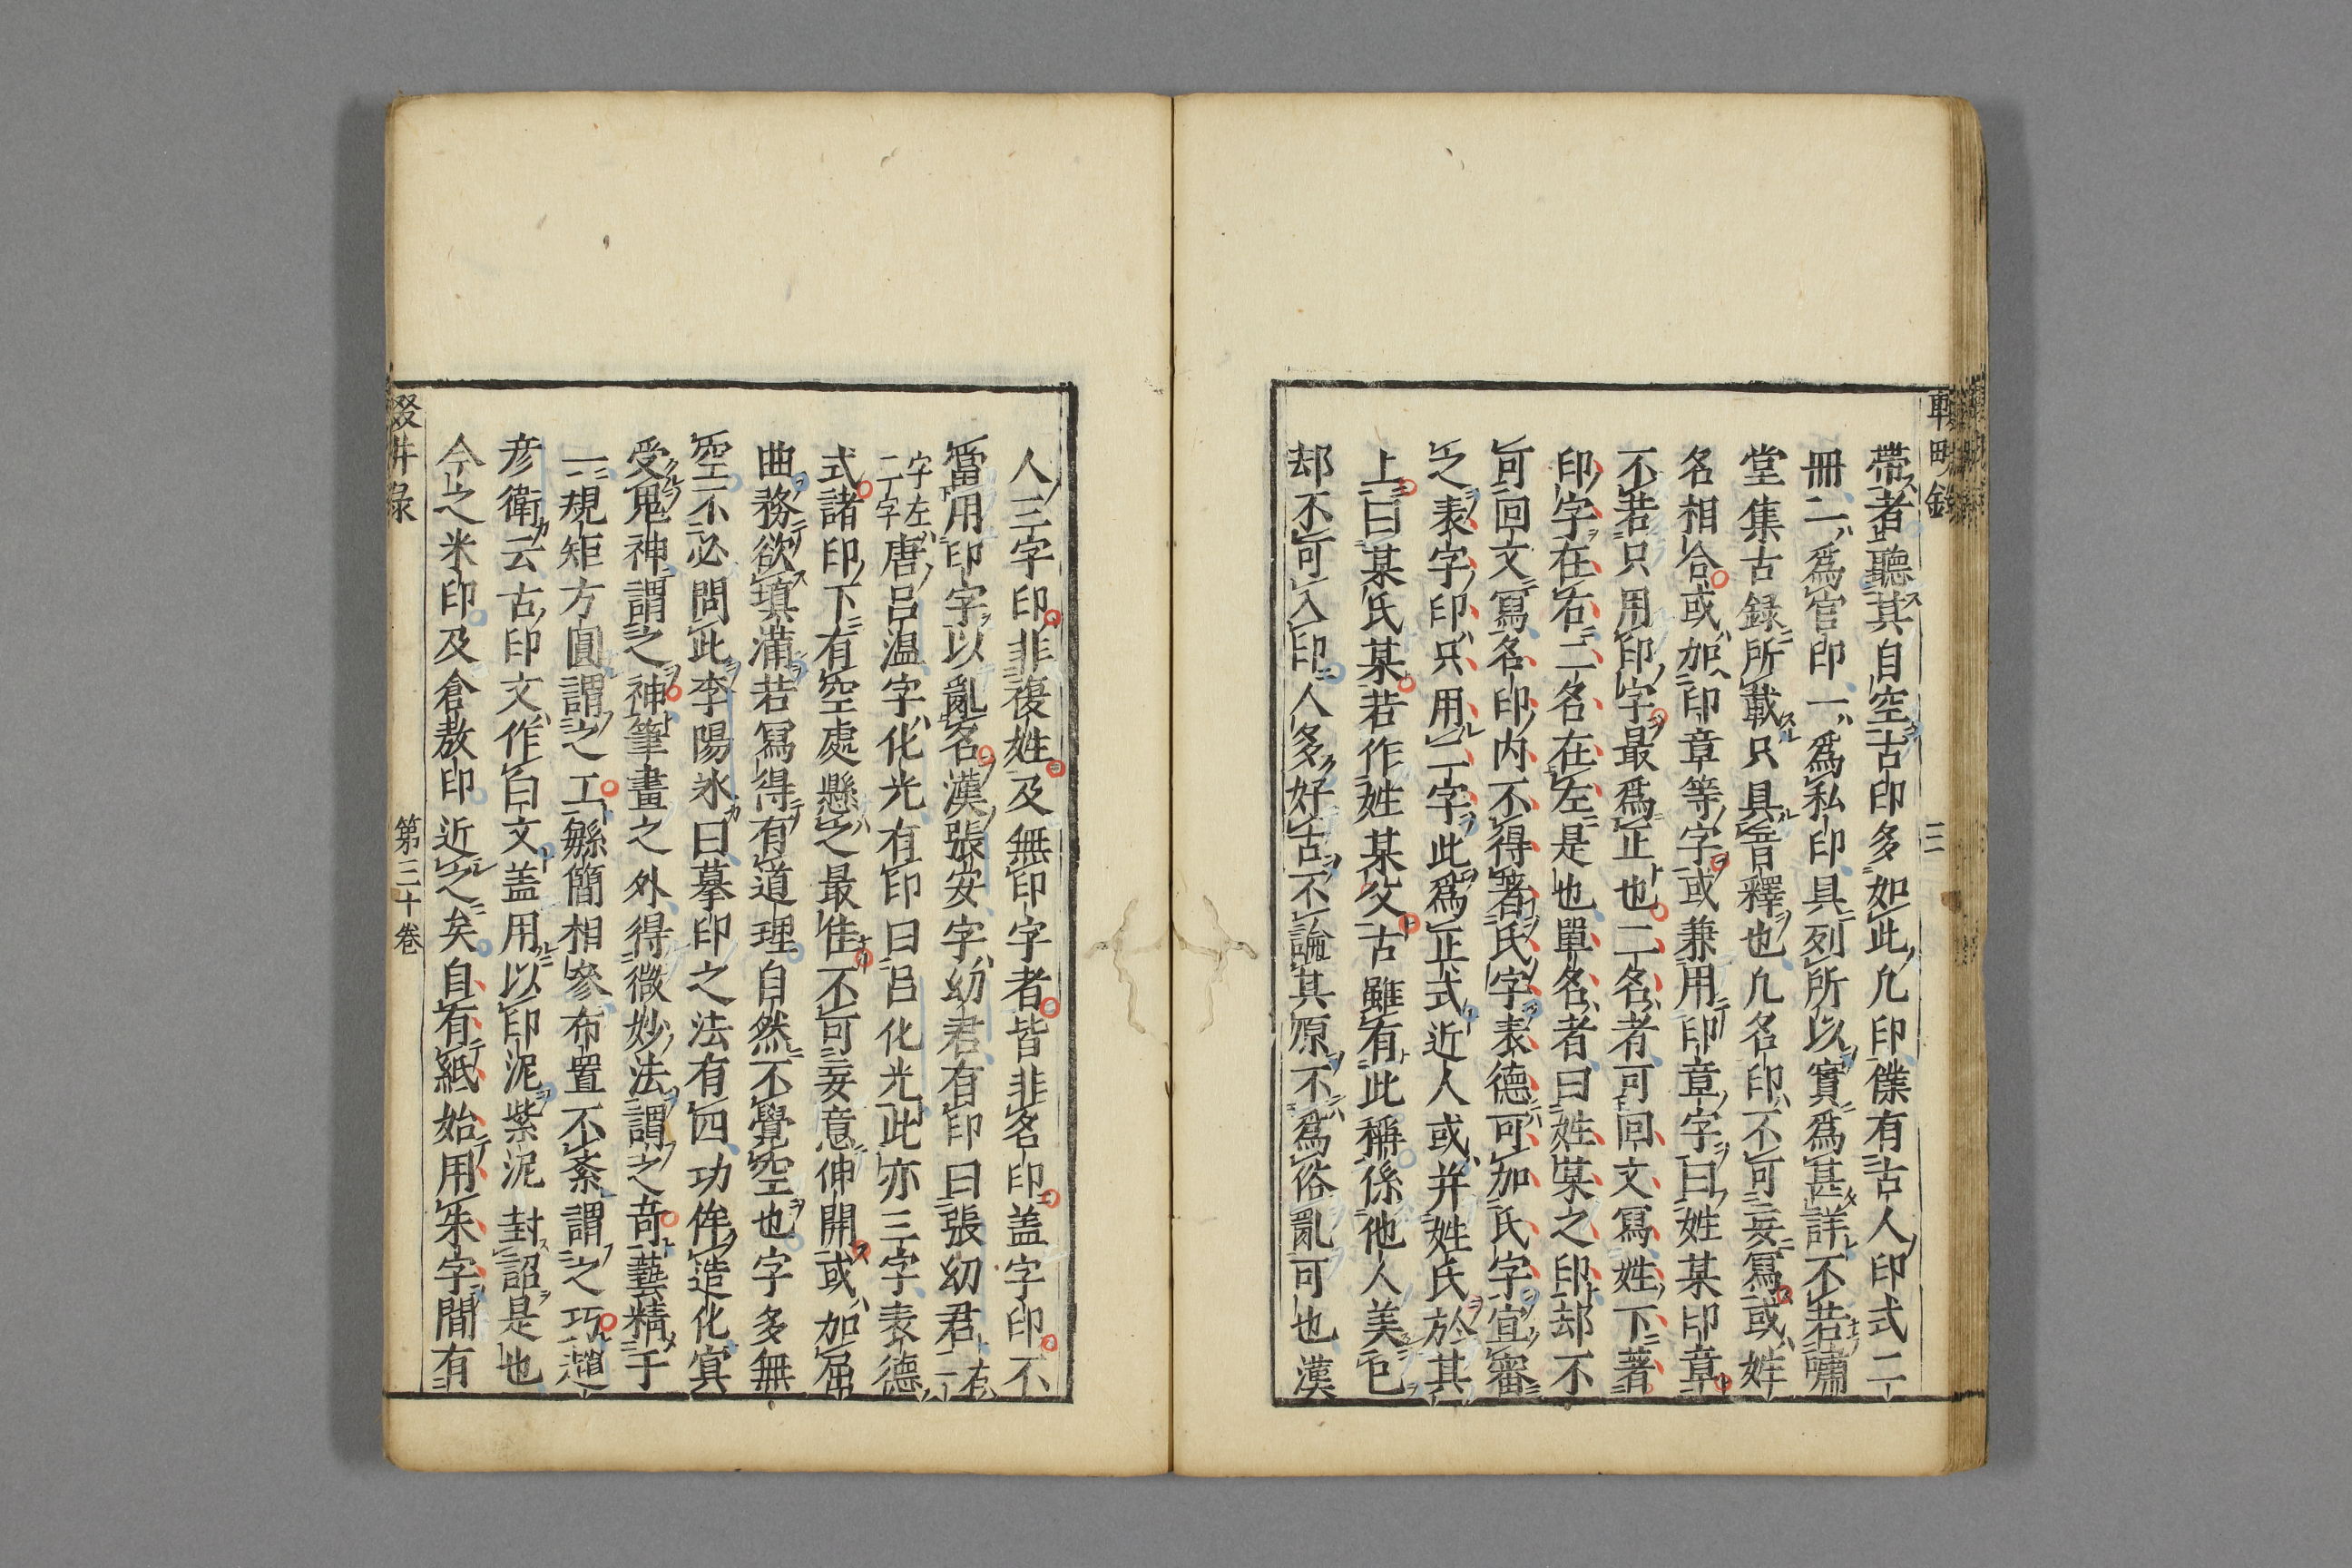 帶者聽其自空古印多如此凡印僕有古人印式二
冊一爲官印一爲私印具列所以實爲甚詳不若嘯
堂集古録所載只具音釋也凡名印不可妄寫或姓
名相合或加印章等字或兼用印章字曰姓某印章
不若只用印字最爲正也二名者可回文寫姓下著
印字在右二名在左是也單名者曰姓某之印却不
可回文寫名印内不得著氏字表德可加氏字宜審
之表字印只用二字此爲正式近人或并姓氏於其
上曰某氏某若作姓某父古雖有此稱係他人美己
却不可入印人多好古不論其原不爲俗亂可也漢
人三字印非複姓及無印字者皆非名印盖字印不
當用印字以亂名漢張安字幼君有印曰張幼君右一
字左二字唐呂温字化光有印曰呂化光此亦三字表德
式諸印下有空處懸之最佳不可妄意伸開或加屈
曲務欲塡滿若寫得有道理自然不覺空也字多無
空不必問此李陽冰曰摹印之法有四功侔造化冥
受鬼神謂之神筆畫之外得微妙法謂之竒藝精于
一規矩方圓謂之工緐簡相參布置不紊謂之巧趙
彦衛云古印文作白文盖用以印泥紫泥封詔是也
今之米印及倉敖印近之矣自有紙始用朱字間有
輟耕録
第三十卷